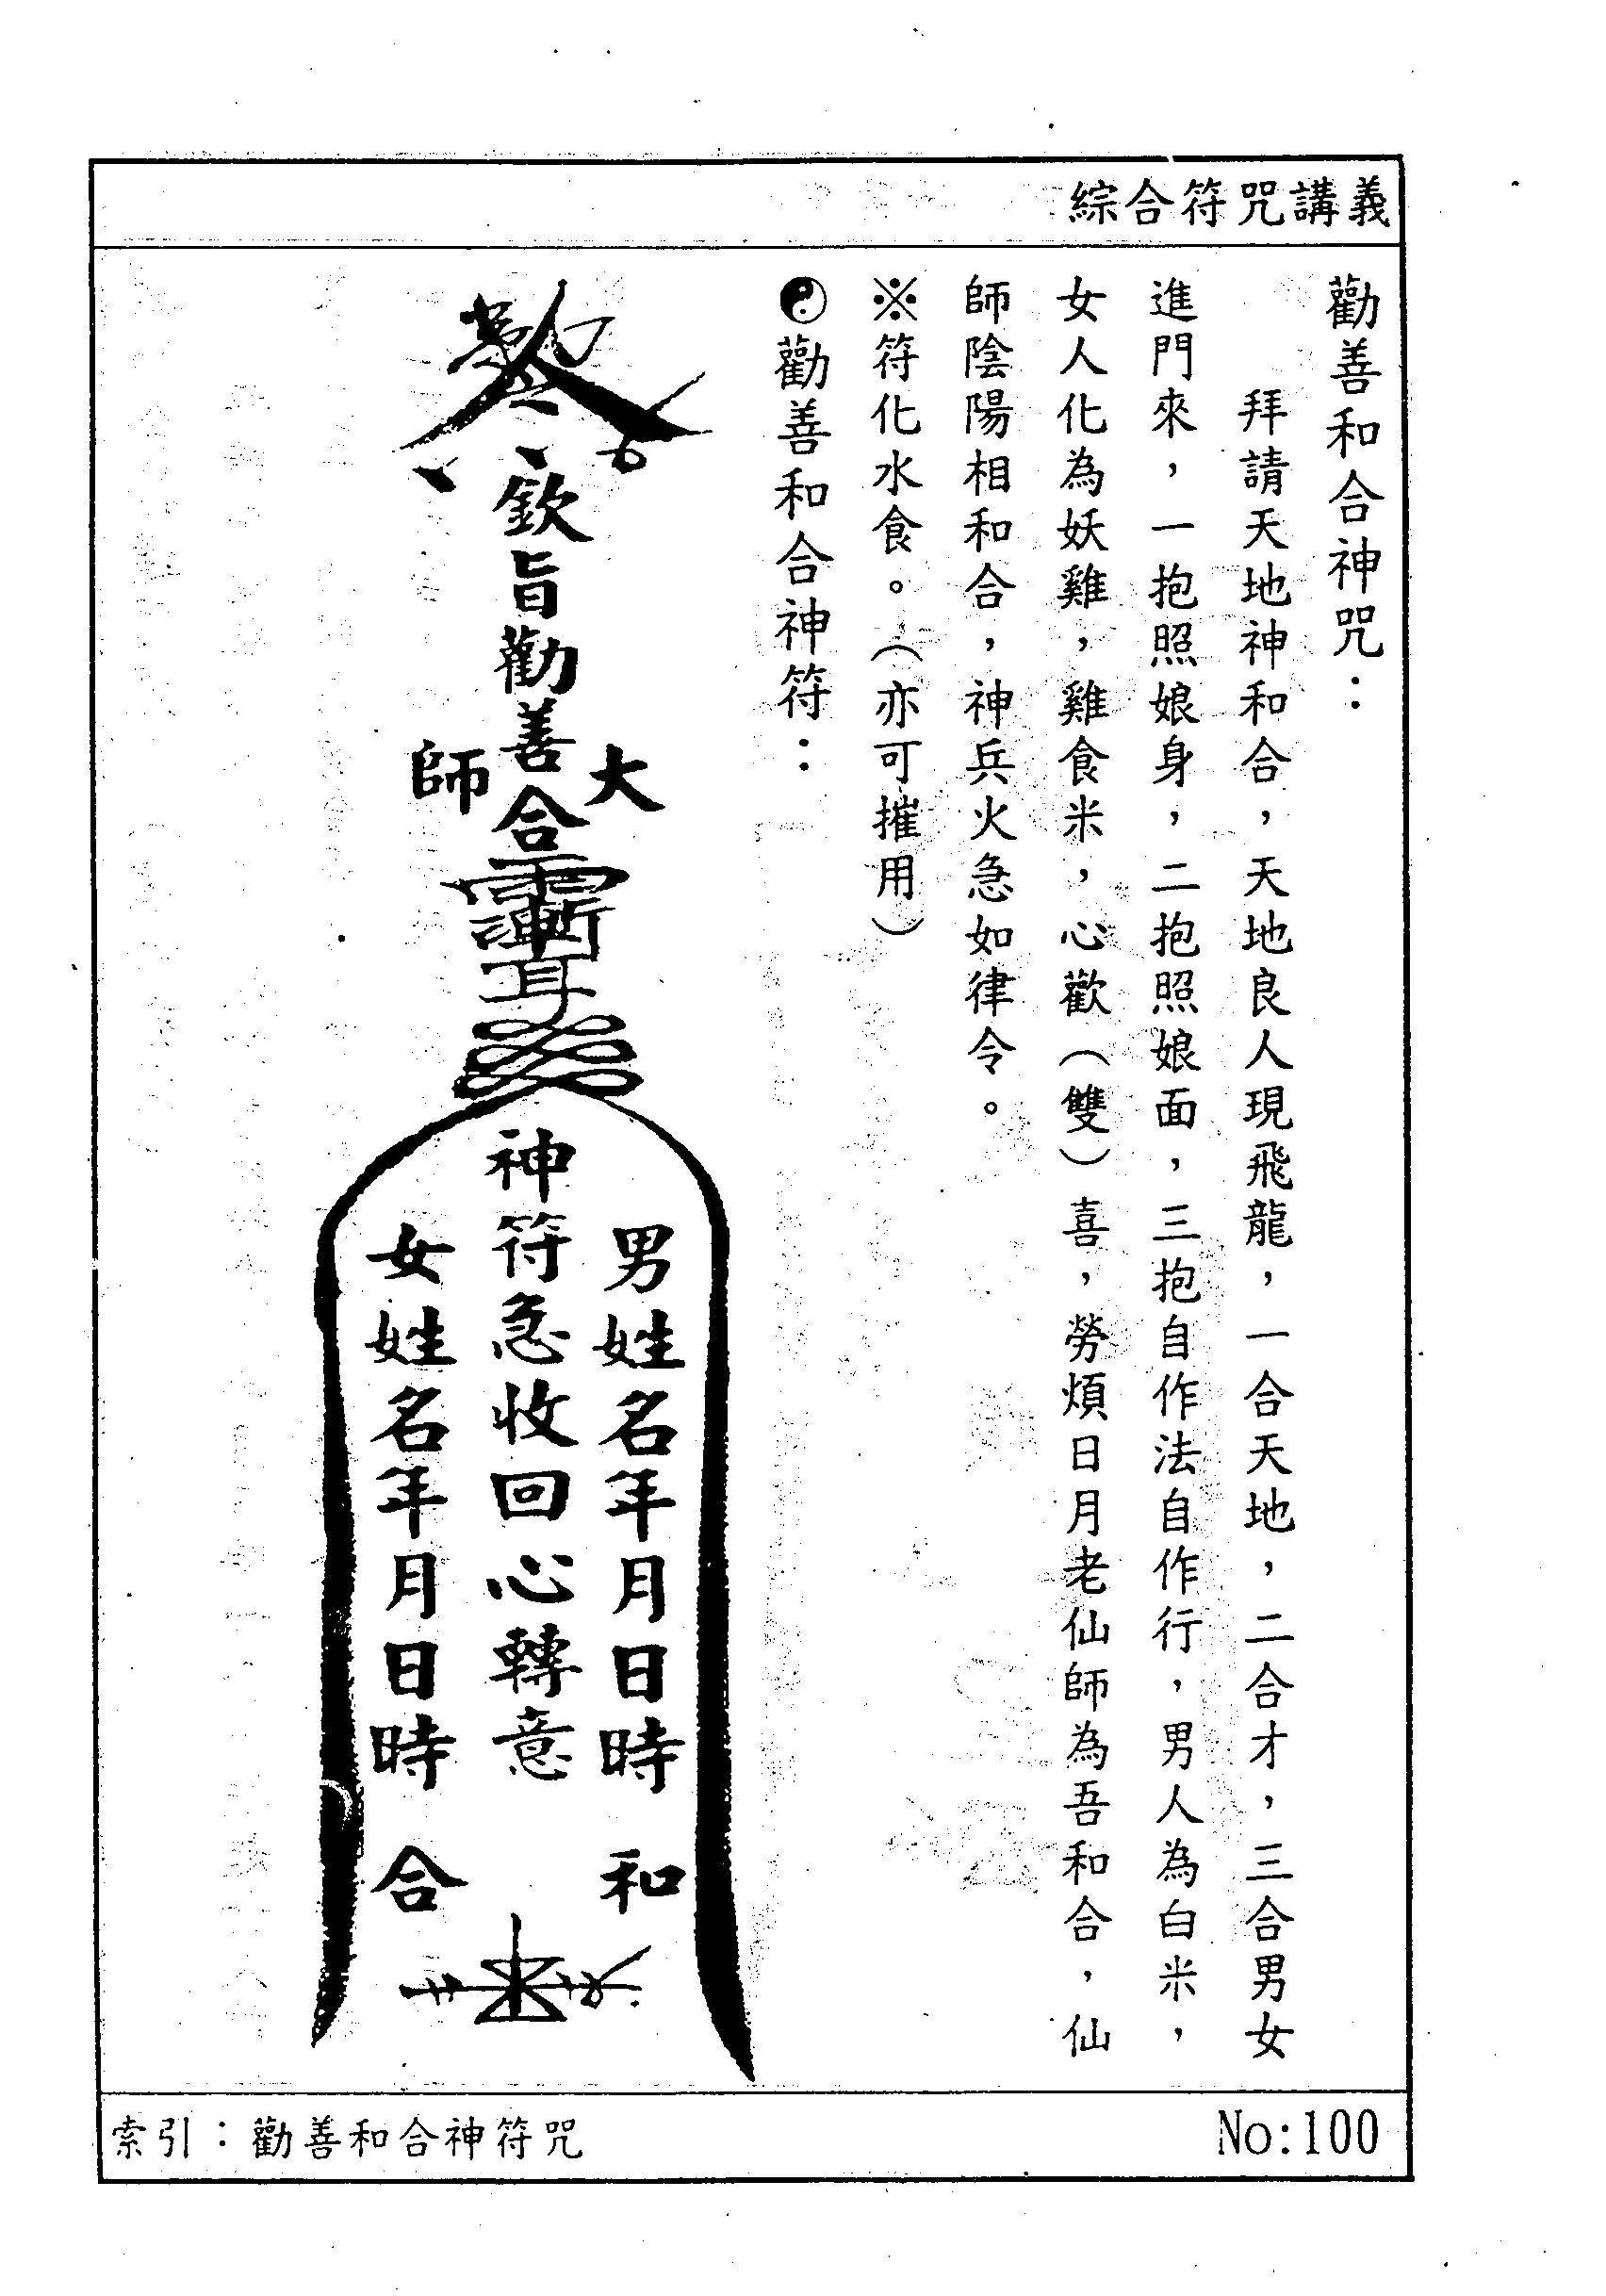 綜合符咒講義
勸善和合神咒：
拜請天地神和合，天地良人現飛龍，一合天地，二合才，三合男女
進門來，一抱照娘身，二抱照娘面，三抱自作法自作行，男人為白米，
女人化為妖雞，雞食米，心歡（雙）喜，勞煩日月老仙師為吾和合，仙
師陰陽相和合，神兵火急如律令。
※符化水食。（亦可摧用）
☯勸善和合神符：
欽旨勸善合
大師
男姓名年月日時 和
神符急收回心轉意
女姓名年月日時 合
索引：勸善和合神符咒
No:100